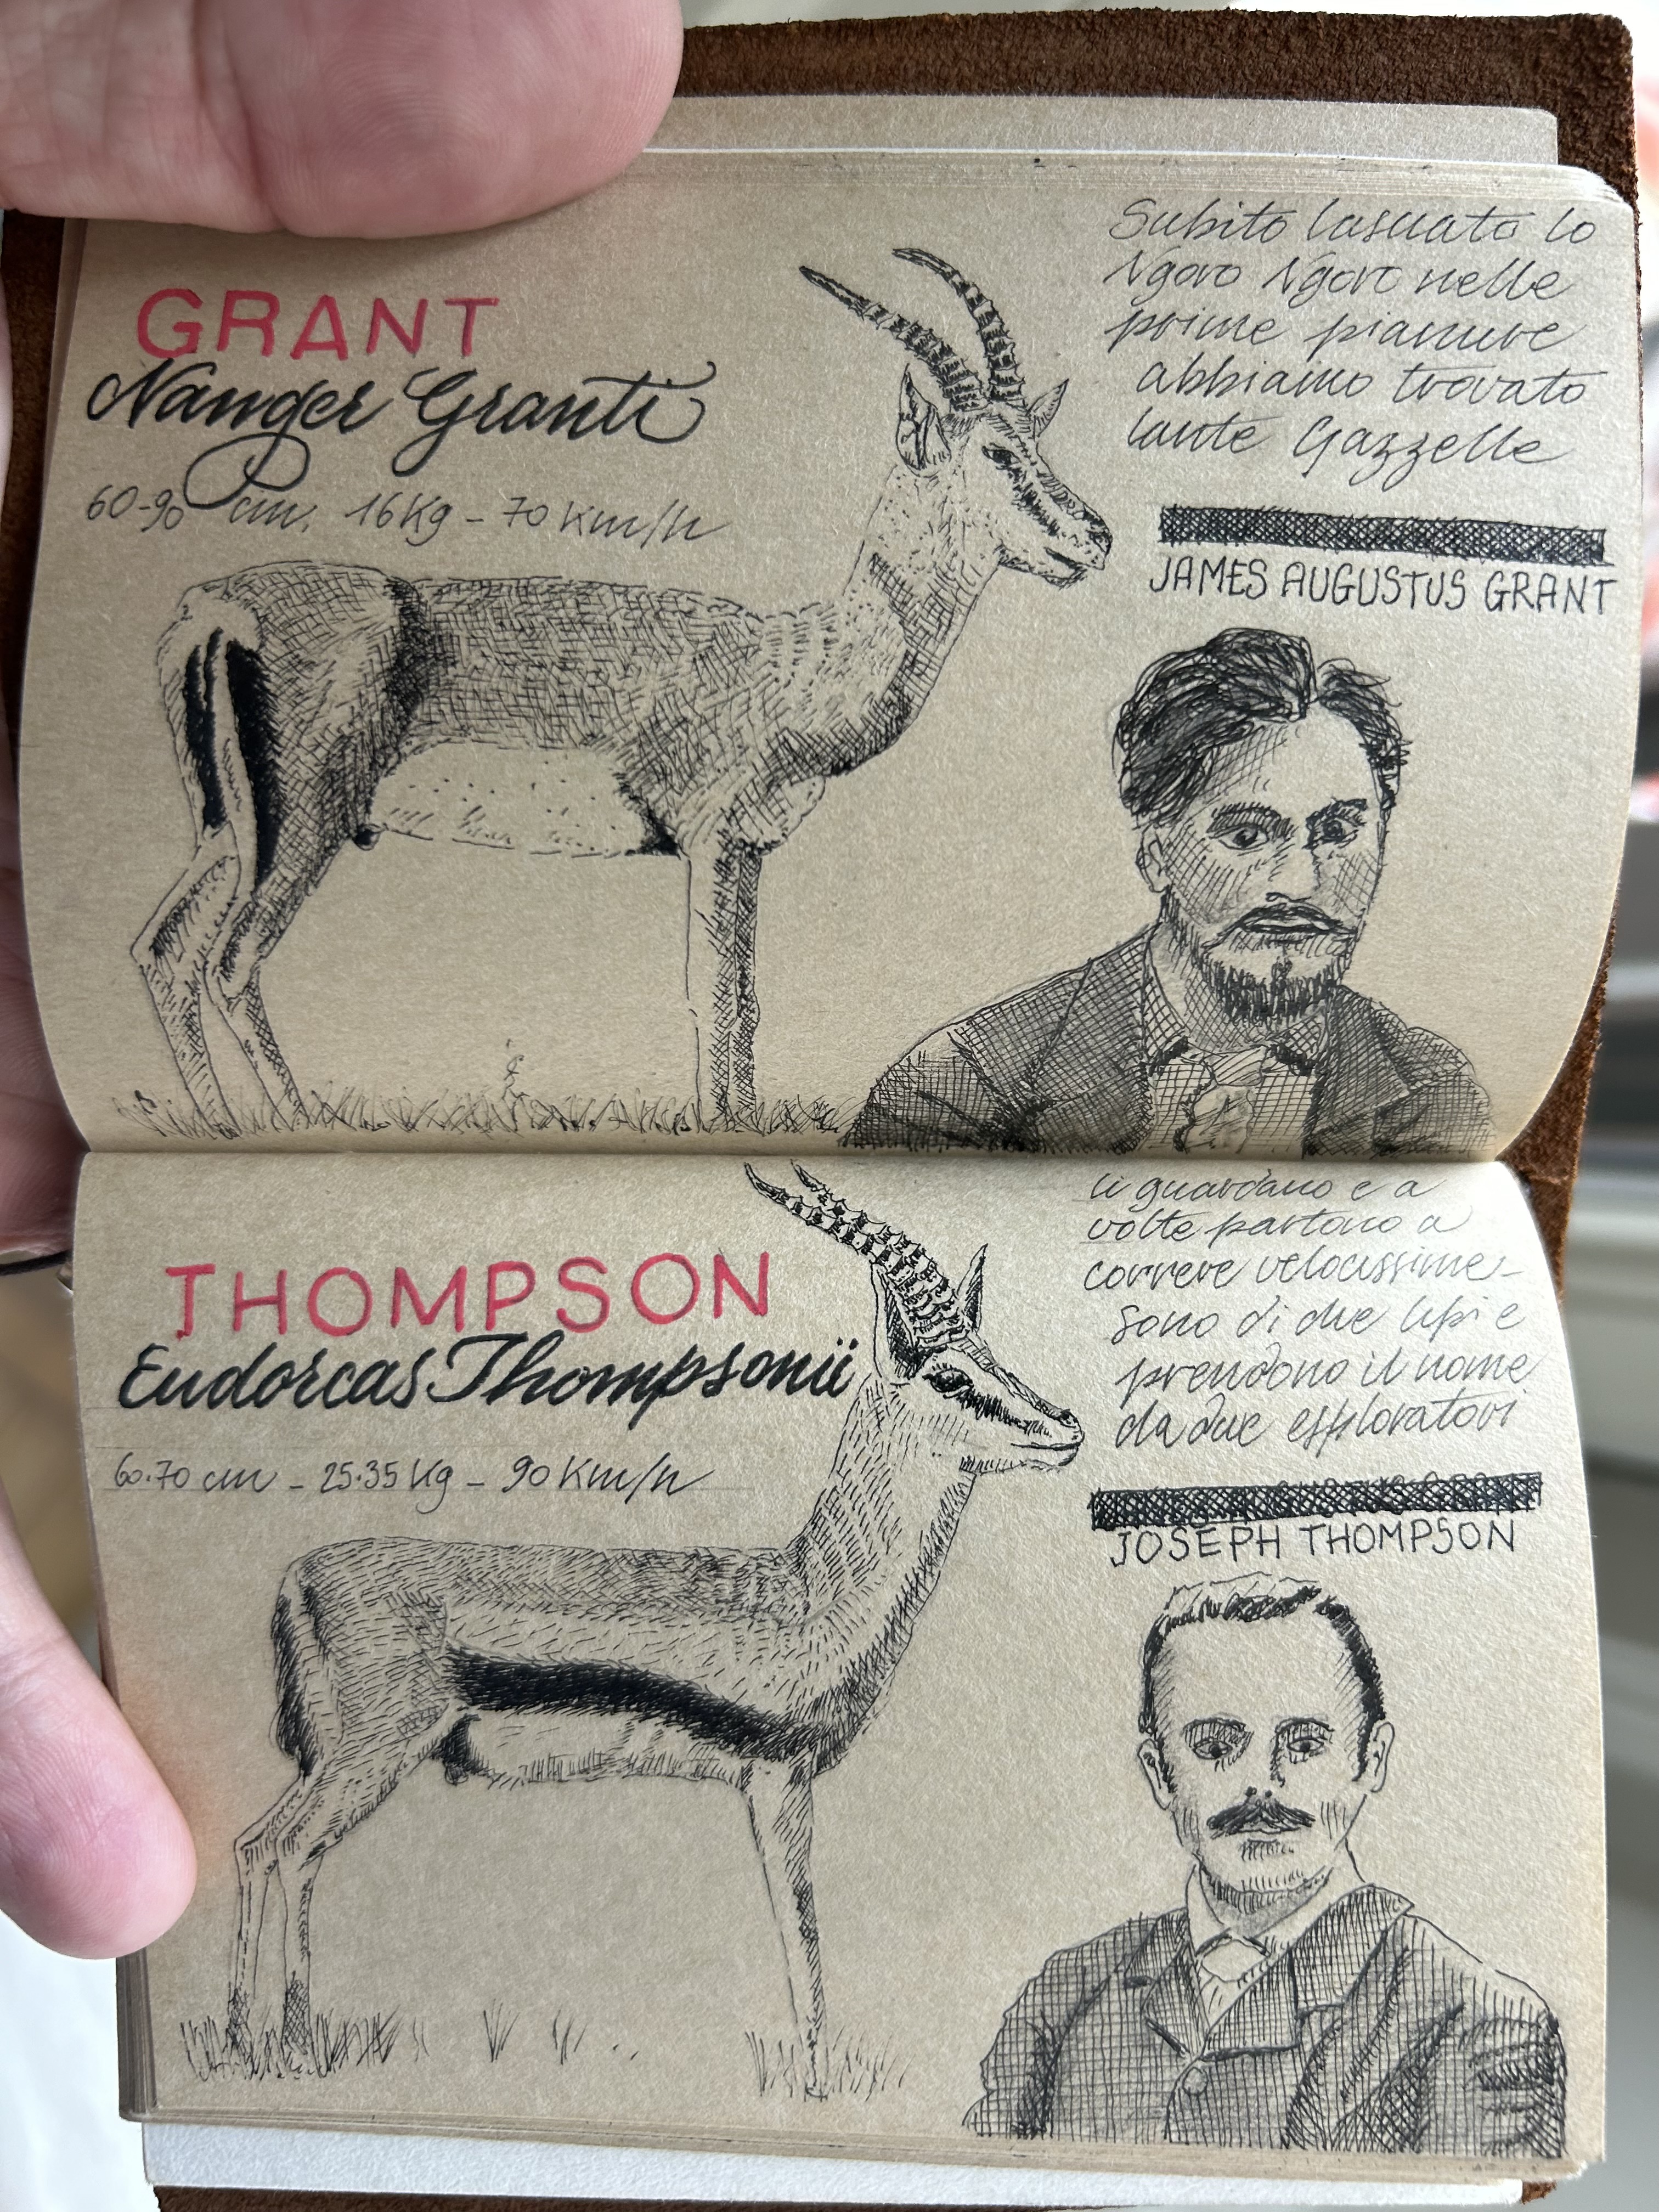 GRANT
Nanger Granti
60-90 cm. 16Kg - 70 Km/h
Subito lasciato lo
Ngoro Ngoro nelle
prime pianure
abbiamo trovato
tante Gazzelle
JAMES AUGUSTUS GRANT
THOMPSON
Eudorcas Thompsonii
60.70 cm - 25.35 Kg - 90 Km/h
ti guardano e a
volte partono a
correre velocissime -
sono di due tipi e
prendono il nome
da due esploratori
JOSEPH THOMPSON